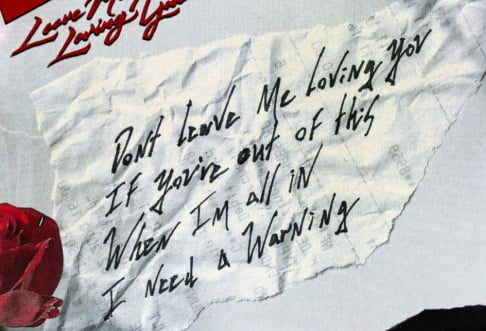 Leave Me
Loving You
Dont Leave Me Loving You
If You're out of this
When Im all in
I Need a Warning